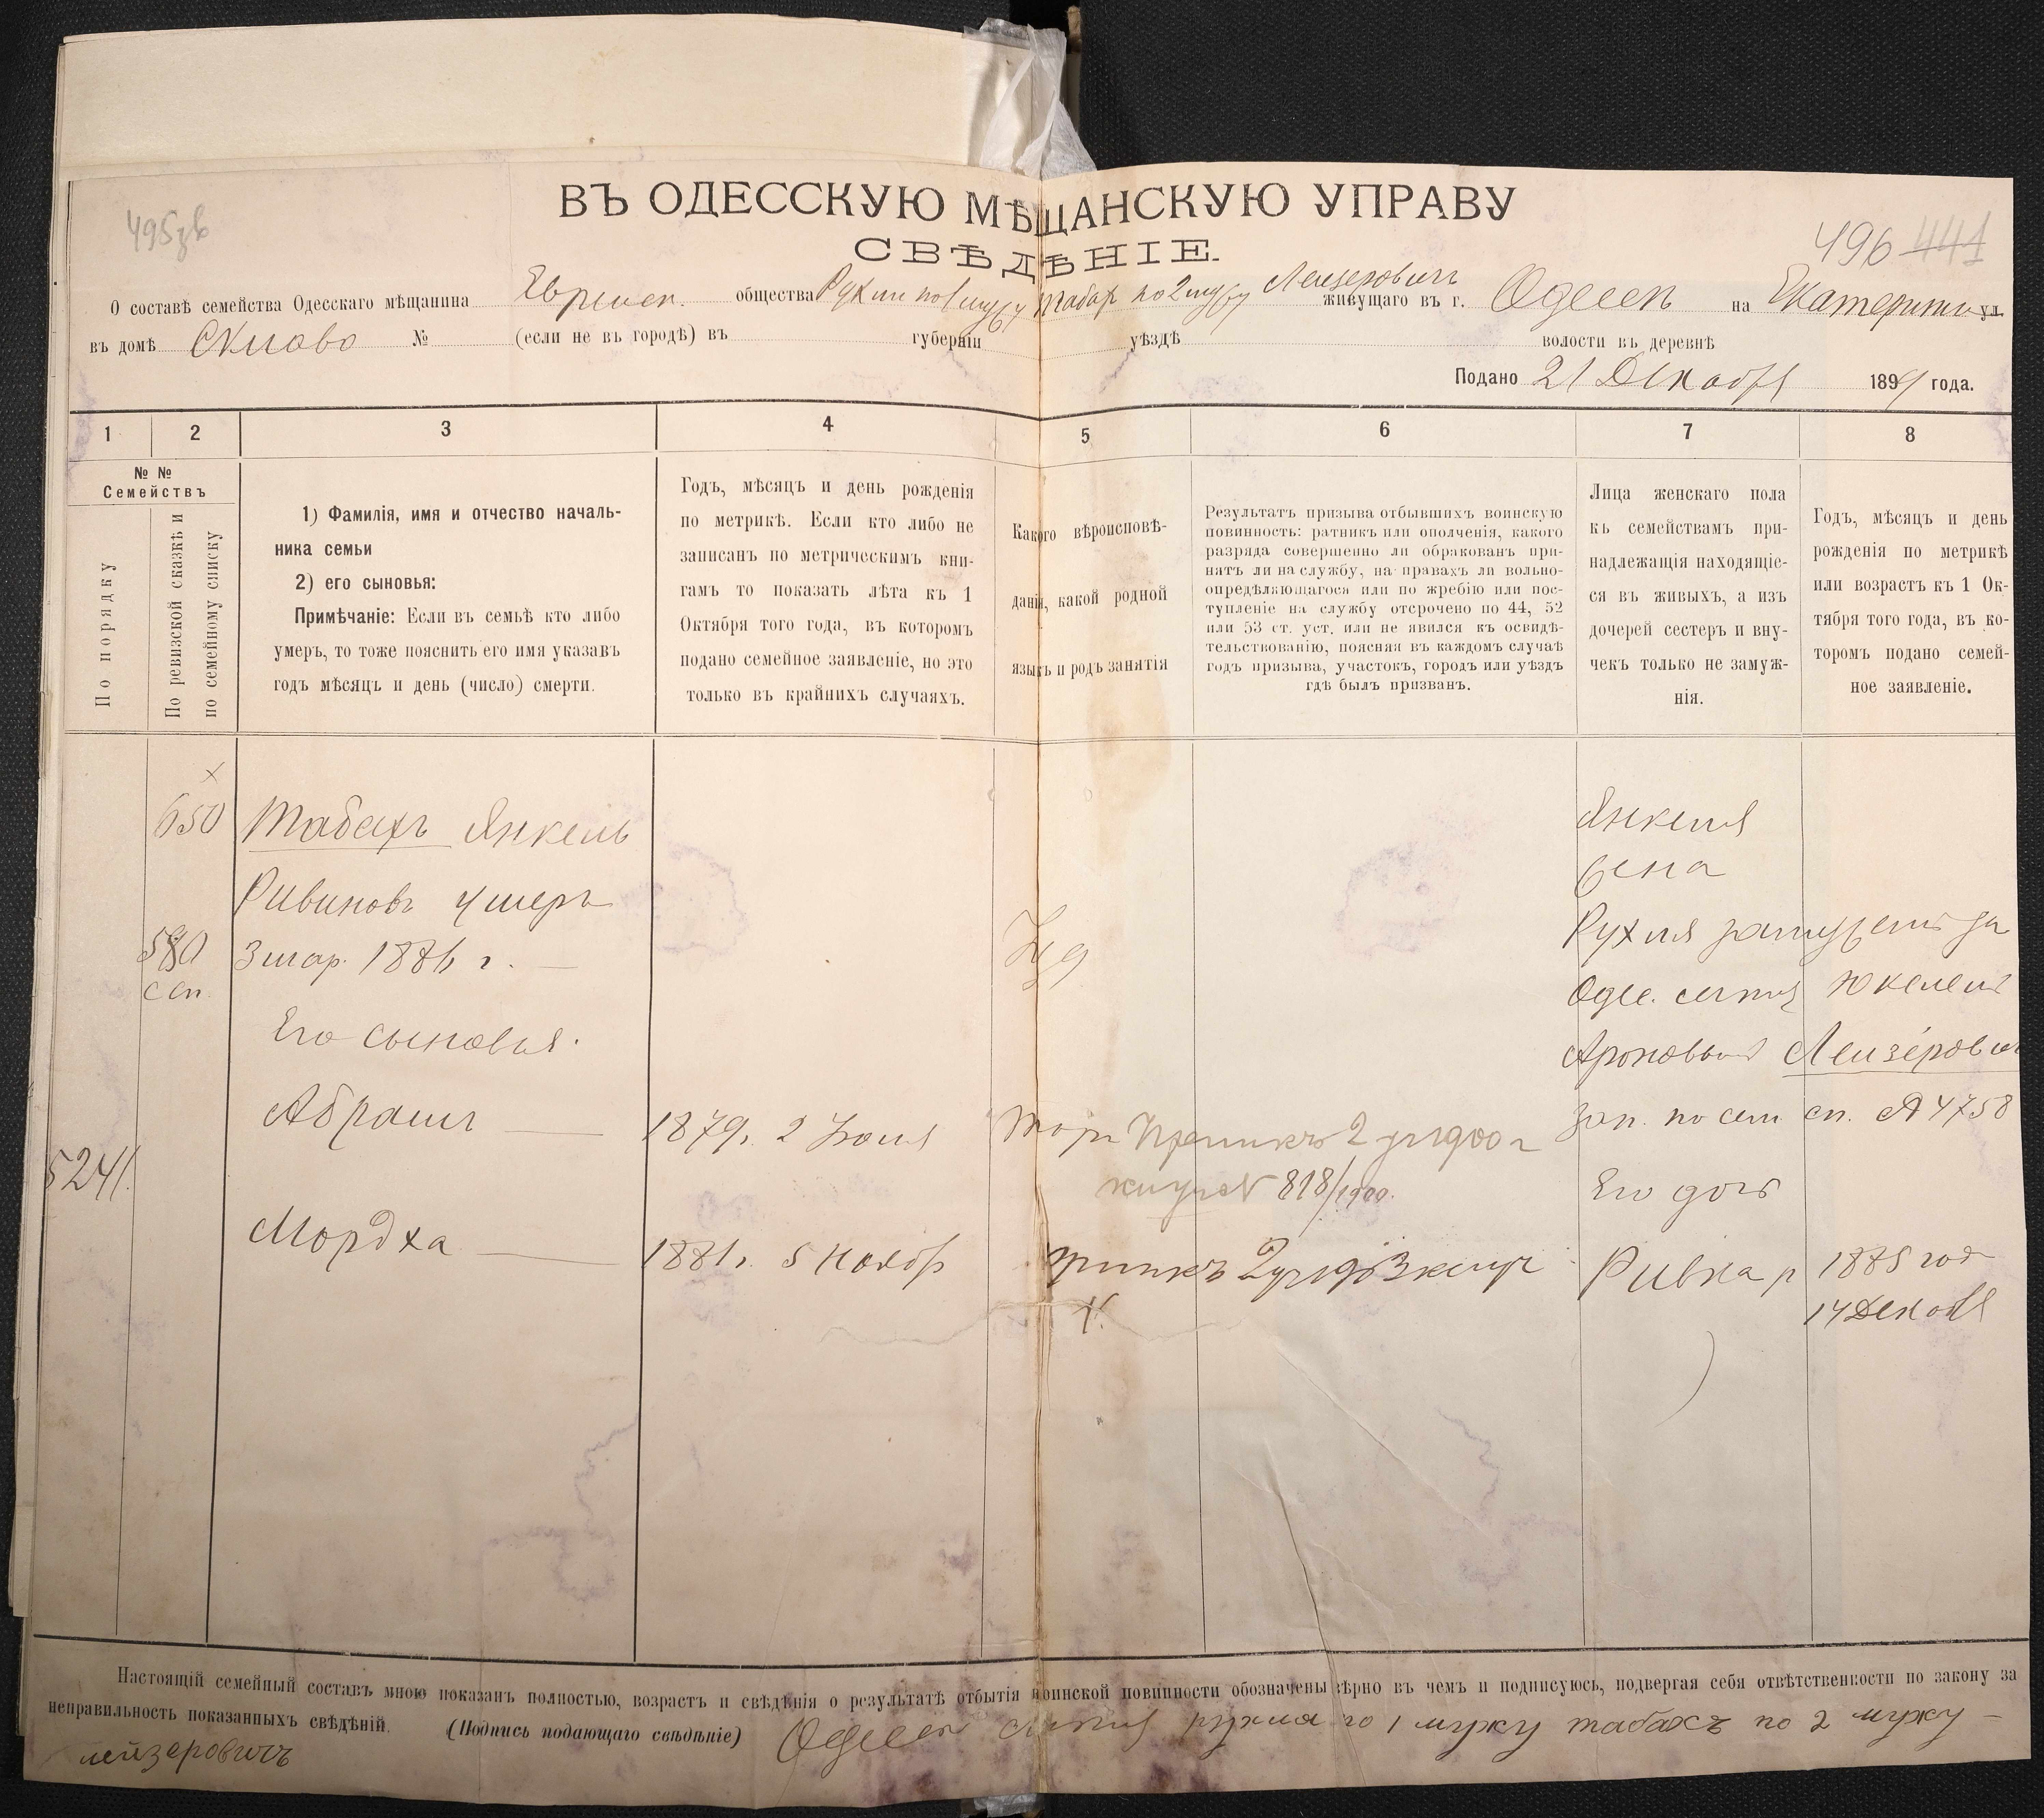 ВЪ ОДЕССКУЮ МѢЩАНСКУЮ УПРАВУ
СВѢДѢНІЕ.
495
496 441
О составѣ семейства Одесскаго мѣщанина Еврейск. общества Рухли по 1 мужу Табах по 2 мужу Лейзерович живущаго въ г. Одессѣ на Екатерин ул.
въ домѣ № (если не въ городѣ) въ губерніи уѣздѣ волости въ деревнѣ
Подано 21 Декабря 189 года.
1 2 3 4 5 6 7 8
№ №
Семействъ
По порядку
По ревизской сказкѣ и
по семейному списку
1) Фамилія, имя и отчество началь-
ника семьи
2) его сыновья:
Примѣчаніе: Если въ семьѣ кто либо
умеръ, то тоже пояснить его имя указавъ
годъ мѣсяцъ и день (число) смерти.
Годъ, мѣсяцъ и день рожденія
по метрикѣ. Если кто либо не
записанъ по метрическимъ кни-
гамъ то показать лѣта къ 1
Октября того года, въ которомъ
подано семейное заявленіе, но это
только въ крайнихъ случаяхъ.
Какого вѣроисповѣ-
данія, какой родной
языкъ и родъ занятія
Результатъ призыва отбывшихъ воинскую
повинность: ратникъ или ополченія, какого
разряда совершенно ли обракованъ при-
нятъ ли на службу, на правахъ ли вольно-
опредѣляющагося или по жребію или пос-
тупленіе на службу отсрочено по 44, 52
или 53 ст. уст. или не явился къ освидѣ-
тельствованію, поясняя въ каждомъ случаѣ
годъ призыва, участокъ, городъ или уѣздъ
гдѣ былъ призванъ.
Лица женскаго пола
къ семействамъ при-
надлежащія находящіе-
ся въ живыхъ, а изъ
дочерей сестеръ и вну-
чекъ только не замуж-
нія.
Годъ, мѣсяцъ и день
рожденія по метрикѣ
или возрастъ къ 1 Ок-
тября того года, въ ко-
торомъ подано семей-
ное заявленіе.
650 Табахъ Янкель
Рувинов умеръ
3 мар. 1886 г.
580
с сп.
Его сыновья.
Абрам 1879 г. 2 Іюля
5241.
Мордха 1881 г. 5 Нояб
Іуд
Принятъ 2 уч 1900 г
жнуч № 818/1900.
принятъ 2 уч 1903 жнуч
Янкеля
жена
Рухля замужем за
Одес. мѣщ Юкелем
Ароновым Лейзерович
зап. по сем сп. № 4758
Его дочь
Ривка р 1885 год
14 Декабя
Настоящій семейный составъ мною показанъ полностью, возрастъ и свѣдѣнія о результатѣ отбытія воинской повинности обозначены вѣрно въ чемъ и подписуюсь, подвергая себя отвѣтственности по закону за
неправильность показанныхъ свѣдѣній. (Подпись подающаго свѣдѣніе) Одесск рухля по 1 мужу табахъ по 2 мужу –
лейзеровичъ